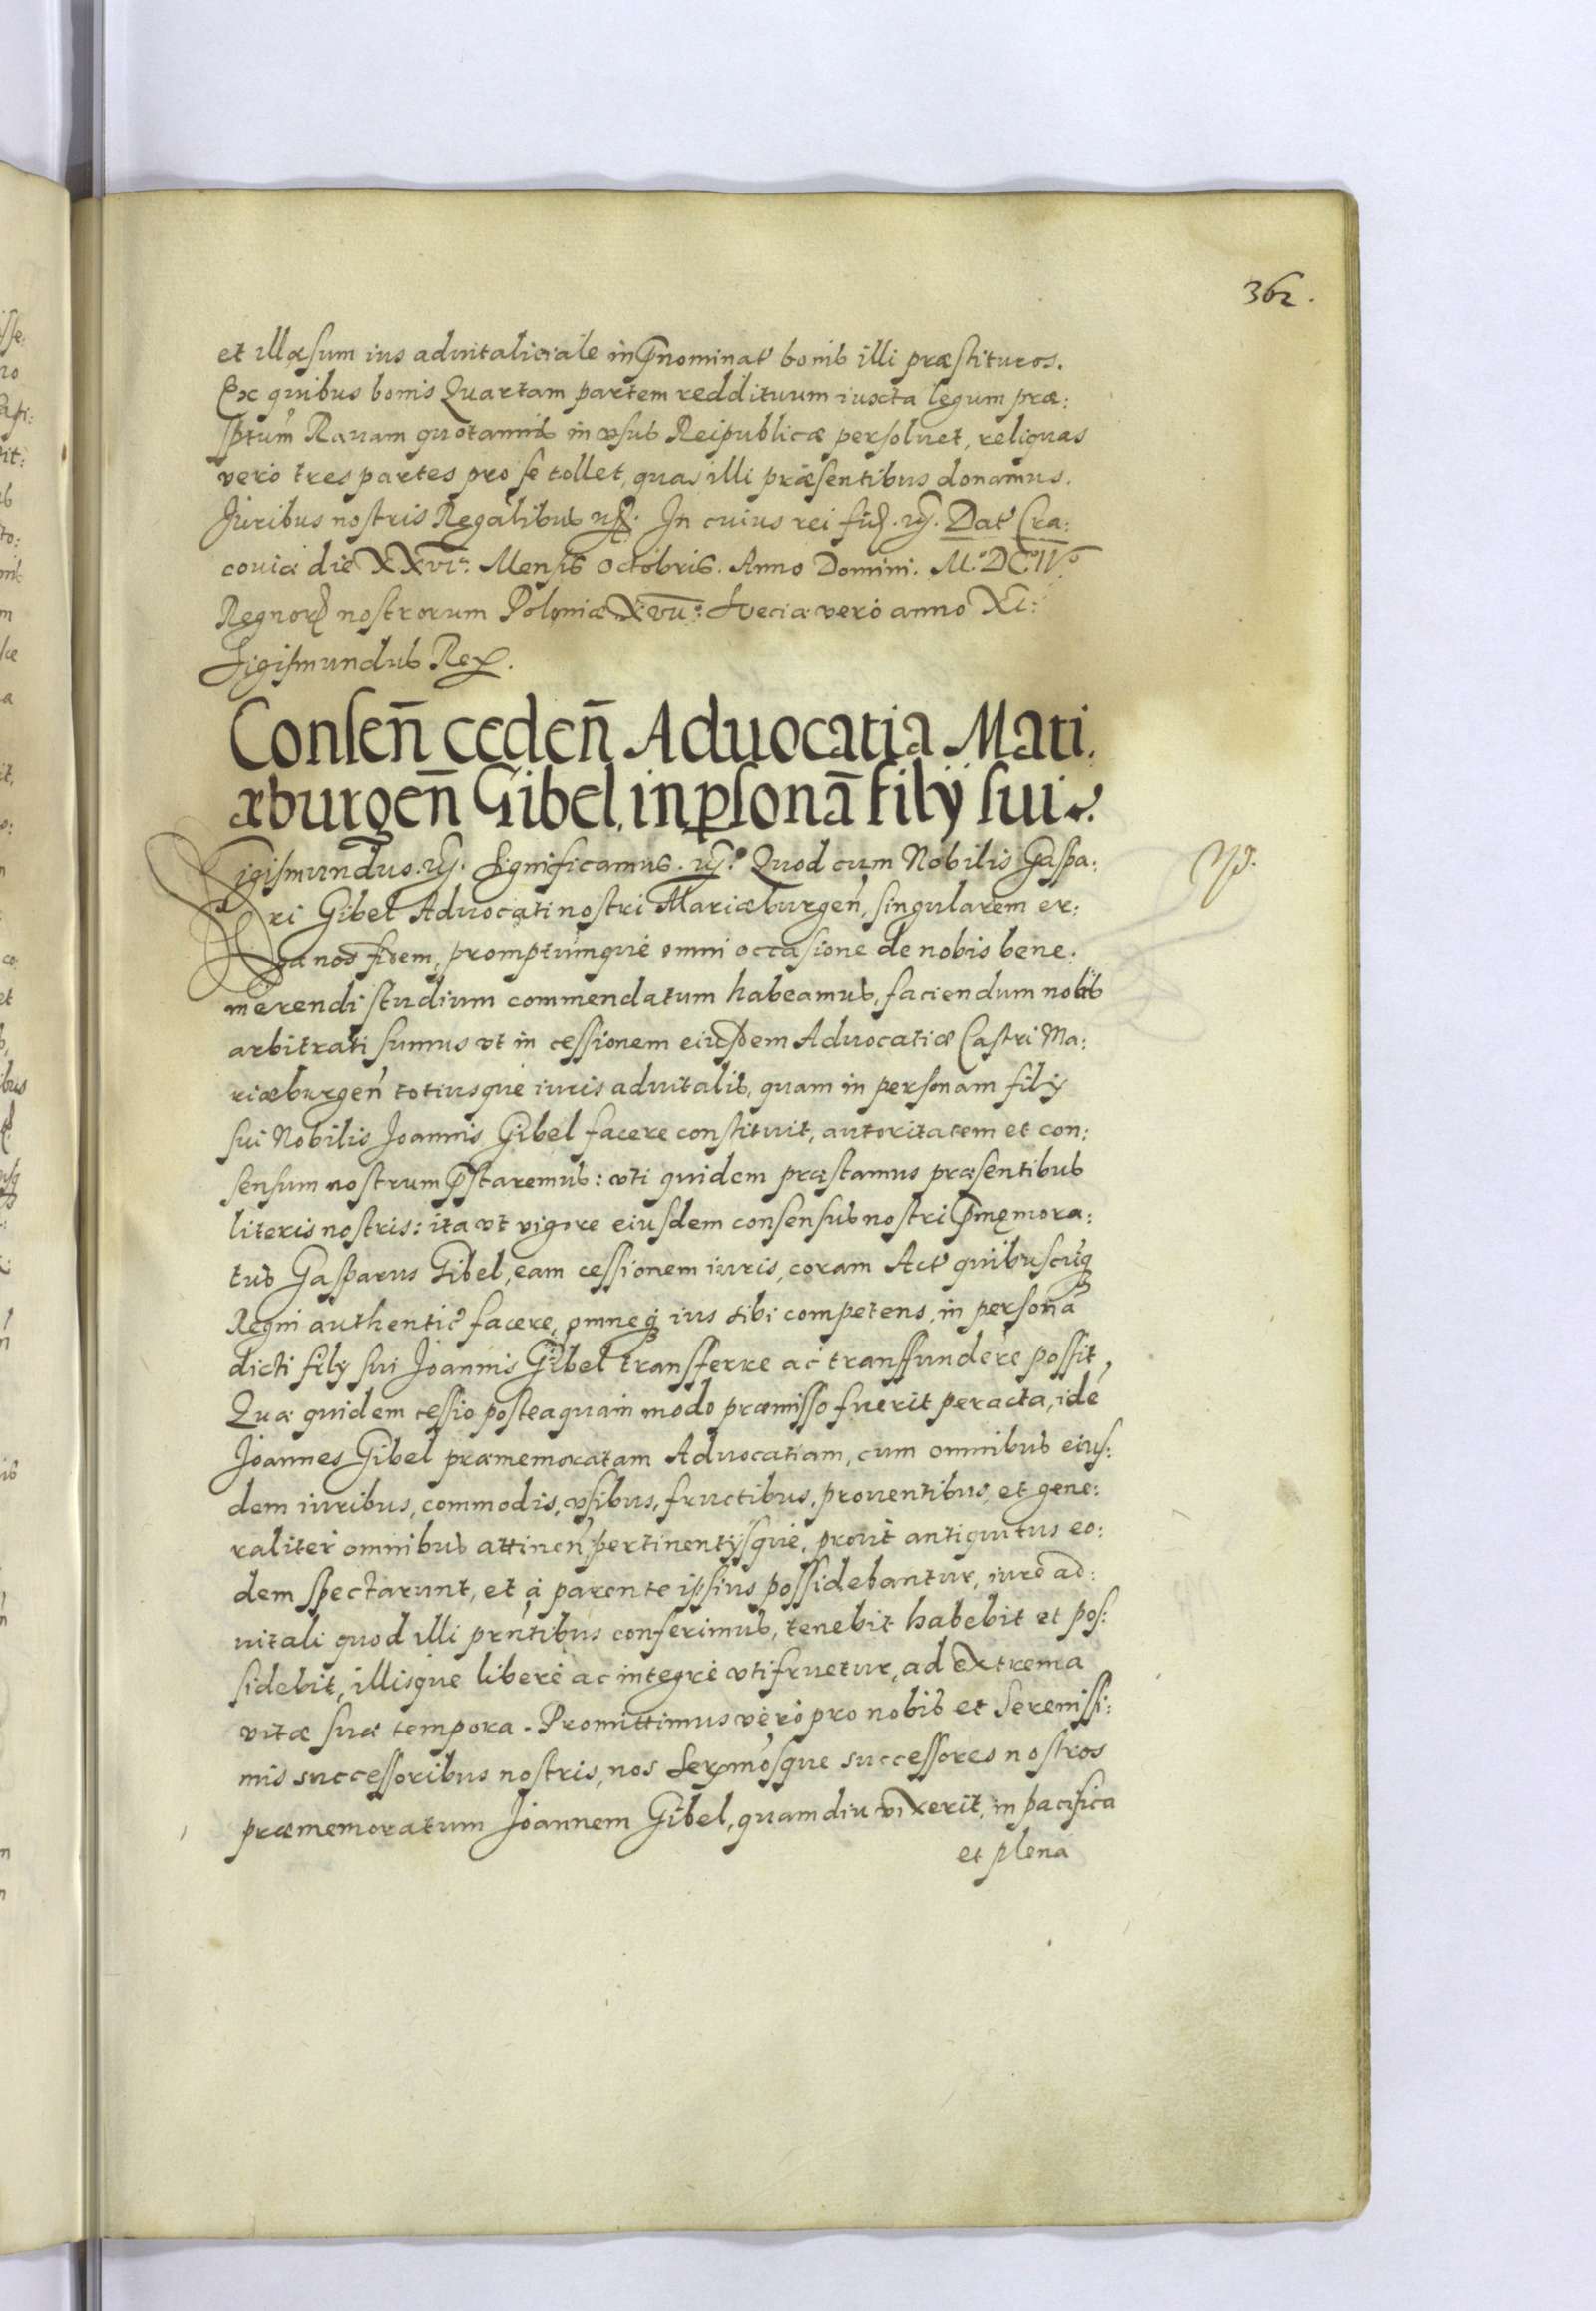 362.
et illæsum ius aduitaliciale in p̄nominat' bonis illi præstituros.
Ex quibus bonis Quartam partem reddituum iuxta legum præ:
sptum Rauam quotannis in vsus Reipublicæ persoluet, reliquas
vero tres partes pro se tollet, quas illi præsentibus donamus.
Juribus nostris Regalibus In cuius rei fid. Dat' Cra:
couiæ die XXVI. Mensis Octobris. Anno Domini. M.DC.IV.
Regnor. nostrorum Poloniæ XVII. Sveciæ vero anno XI:
Sigismundus Rex.
Consen̄ ceden̄ Aduocatia Mari:
æburgen̄ Gibel, in psonā filij sui.
Sigismundus. Significamus. Quod cum Nobilis Gaspa:
ri Gibel Aduocati nostri Mariæburgen̄, singularem er:
ga nos fidem, promptumque omni occasione de nobis bene:
merendi studium commendatum habeamus, faciendum nobis
arbitrati sumus vt in cessionem eiusdem Aduocatiæ Castri Ma:
riæburgen̄ totiusque iuris aduitalis, quam in personam filij
sui Nobilis Joannis Gibel facere constituit, autoritatem et con:
sensum nostrum p̄staremus: vti quidem præstamus præsentibus
literis nostris: ita vt vigore eiusdem consensus nostri p̄memora:
tus Gasparus Gibel, eam cessionem iuris, coram Act' quibuscūq
Regni authentic' facere, omneq ius sibi competens, in personā
dicti filij sui Joannis Gibel transferre ac transfundere possit,
Quæ quidem cessio posteaquam modo præmisso fuerit peracta, idē
Joannes Gibel præmemoratam Aduocatiam, cum omnibus eius:
dem iuribus, commodis, vsibus, fructibus, prouentibus, et gene:
raliter omnibus attinen̄ pertinentijsque, prout antiquitus eo:
dem spectarunt, et à parente ipsius possidebantur, iure ad:
uitali quod illi prntibus conferimus, tenebit habebit et pos:
sidebit, illisque liberè ac integrè vtifruetur, ad extrema
vitæ suæ tempora. Promittimus vero pro nobis et Serenissi:
mis successoribus nostris, nos Sermosque successores nostros
præmemoratum Joannem Gibel, quamdiu vixerit, in pacifica
et plena